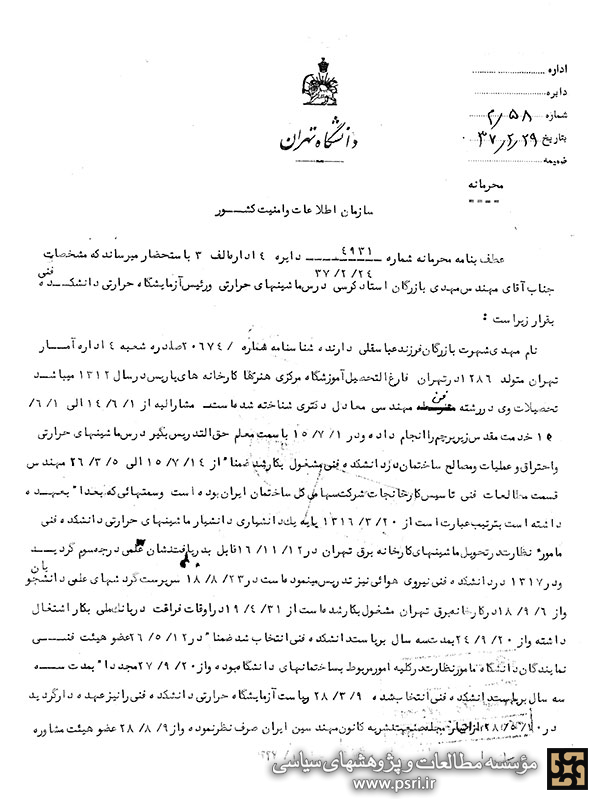 اداره
دایره
شماره ۵۸/م
بتاریخ ۳۷/۲/۲۹
ضمیمه
محرمانه
دانشگاه تهران
سازمان اطلاعات وامنیت کشور
عطف بنامه محرمانه شماره ۴۹۳۱ ۳۷/۲/۲۴ دایره ۴ اداره الف ۳ باستحضار میرساند که مشخصات
جناب آقای مهندس مهدی بازرگان استاد کرسی درس ماشینهای حرارتی ورئیس آزمایشگاه حرارتی دانشکده فنی
بقرار زیراست :
نام مهدی شهرت بازرگان فرزند عباسقلی دارنده شناسنامه شماره ۲۰۶۷۴/ صادره شعبه ۴ اداره آمار
تهران متولد ۱۲۸۶ در تهران فارغ التحصیل آموزشگاه مرکزی هنرها کارخانه های پاریس در سال ۱۳۱۲ میباشد
تحصیلات وی در رشته فوق مهندسی معادل دکتری شناخته شده است مشارالیه از ۱۴/۶/۱ الی ۶/۱/
۱۵ خدمت مقدس زیر پرچم را انجام داده ودر ۱۵/۷/۱ باسمت معلم حق التدریس بگیر درس ماشینهای حرارتی
واحتراق وعملیات ومصالح ساختمان در دانشکده فنی مشغول بکار شده ضمنا" از ۱۵/۷/۱۴ الی ۲۶/۳/۵ مهندس
قسمت مطالعات فنی تاسیس کارخانجات شرکت سهامی کل ساختمان ایران بوده است وسمتهائی که بعدا" بعهده
داشته است بترتیب عبارت است از ۱۳۱۶/۳/۲۰ پایه یک دانشیاری دانشیار ماشینهای حرارتی دانشکده فنی
مامور نظارت در تحویل ماشینهای کارخانه برق تهران در ۱۶/۱۱/۱۲ نایل بدریافت نشان علمی درجه سوم گردید
ودر ۱۳۱۷ در دانشکده فنی نیروی هوائی نیز تدریس مینموده است در ۱۸/۸/۲۳ سرپرست گردشهای علمی دانشجویان
واز ۱۸/۹/۶ در کارخانه برق تهران مشغول بکار شده است از ۱۹/۴/۳۱ در اوقات فراغت در بانک ملی بکار اشتغال
داشته واز ۲۴/۹/۲۰ بمدت سه سال بریاست دانشکده فنی انتخاب شد ضمنا" در ۲۶/۵/۱۲ عضو هیئت فنی
نمایندگان دانشگاه مامور نظارت در کلیه امور مربوط بساختمانهای دانشگاه بوده واز ۲۷/۹/۲۰ مجددا" بمدت
سه سال بریاست دانشکده فنی انتخاب شده ۲۸/۳/۹ ریاست آزمایشگاه حرارتی دانشکده فنی را نیز عهده دار گردید
در ۲۸/۵/۱۰ از مجله صنعت نشریه کانون مهندسین ایران صرف نظر نموده واز ۲۸/۸/۹ عضو هیئت مشاوره
مؤسسه مطالعات و پژوهشهای سیاسی
www.psri.ir